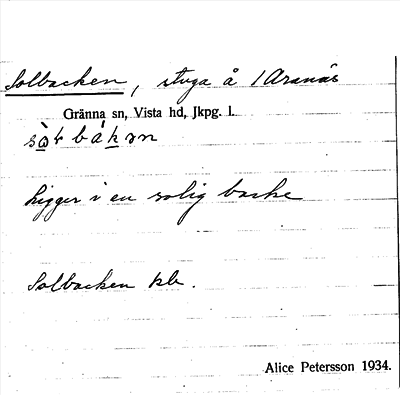 Solbacken, stuga å 1 Aranäs
Gränna sn, Vista hd, Jkpg. l.
Ligger i en solig backe
Solbacken kb.
Alice Petersson 1934.